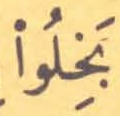 بَخِلُواْ